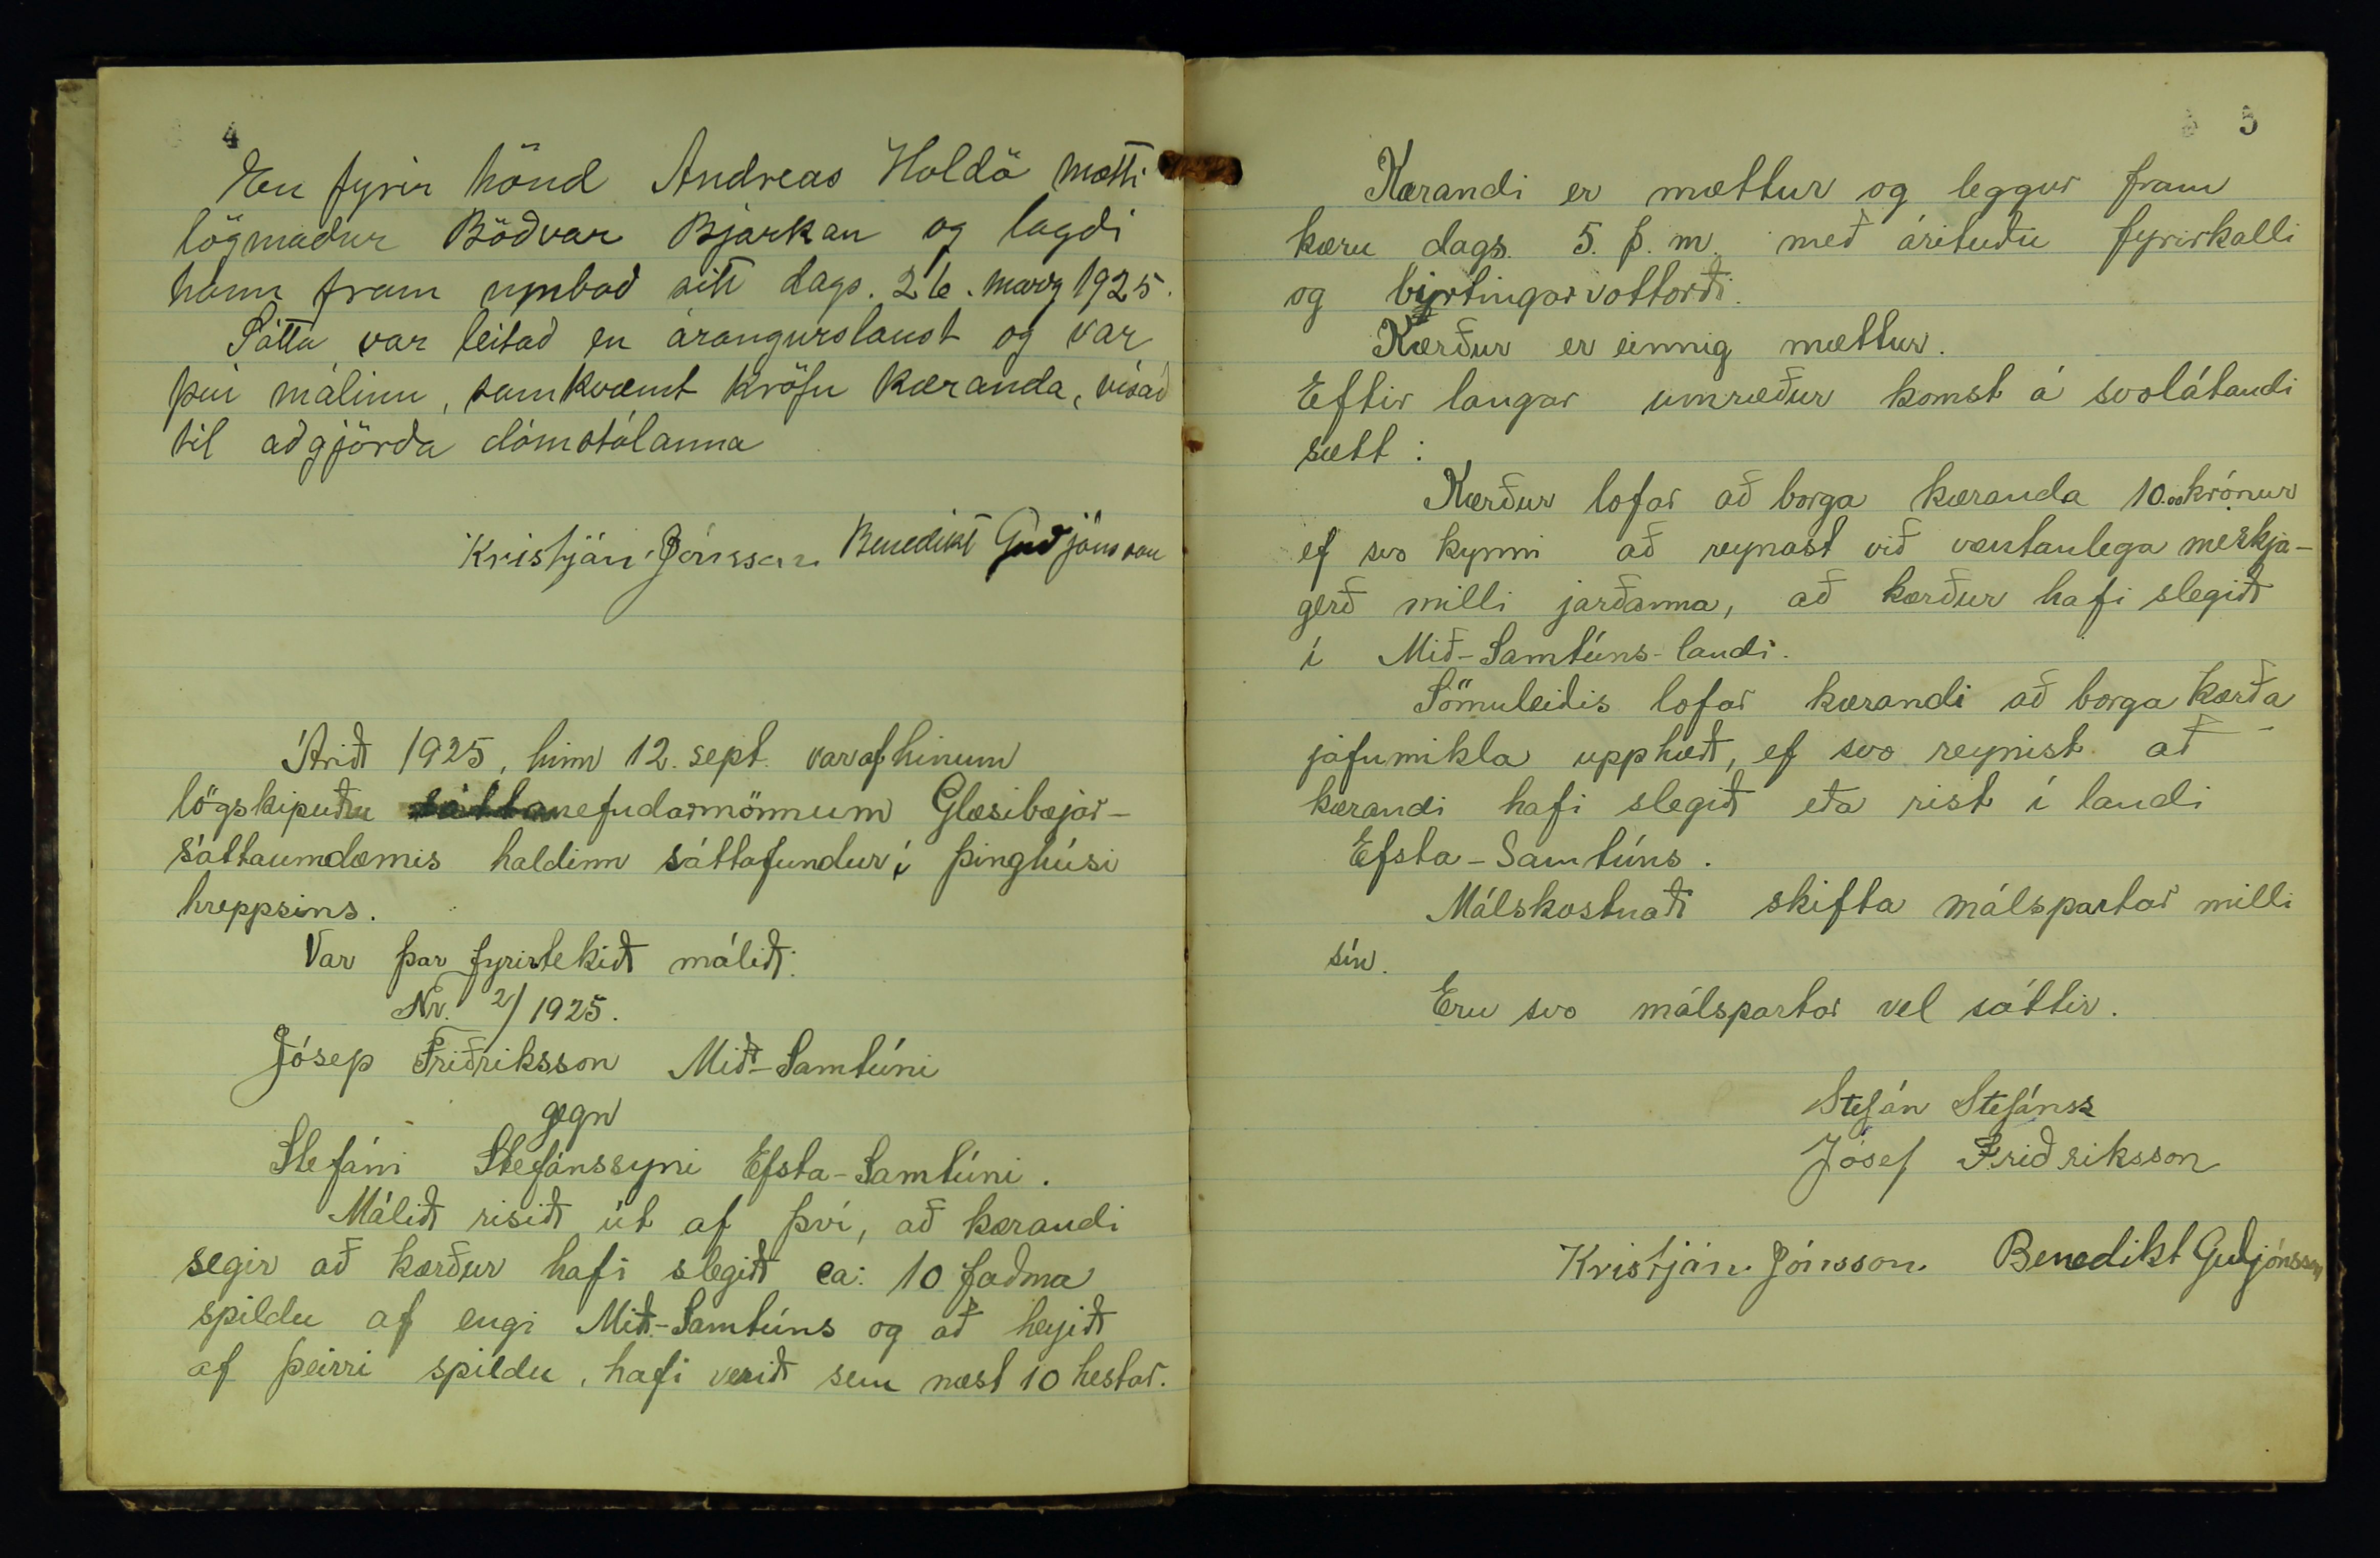 4
En fyrir hönd Andreas Holdö mætti
lögmaður Böðvar Bjarkan og lagði
hann fram umboð sitt dags. 26. marz 1925.
Sátta var leitað en árangurslaust og var
því málinu, samkvæmt kröfu kæranda, vísað
til aðgjörða dómstólanna
Kristján Jónsson Benedikt Guðjónsson
Árið 1925, hinn 12. sept. var af hinum
lögskipuðu sáttanefndarmönnum Glæsibæjar-
sáttaumdæmis haldinn sáttafundur í þinghúsi
hreppsins.
Var þar fyrirtekið málið:
Nr. 2/1925.
Jósep Friðriksson Mið-Samtúni
gegn
Stefáni Stefánssyni Efsta-Samtúni.
Málið risið út af því, að kærandi
segir að kærður hafi slegið ca: 10 faðma
spildu af engi Mið-Samtúns og að heyið
af þeirri spildu, hafi verið sem næst 10 hestar.
5
Kærandi er mættur og leggur fram
kæru dags. 5. þ. m. með árituðu fyrirkalli
og birtingarvottorði.
Kærður er einnig mættur.
Eftir langar umræður komst á svolátandi
sætt:
Kærður lofar að borga kæranda 10.00 krónur
ef svo kynni að reynast við væntanlega merkja-
gerð milli jarðanna, að kærður hafi slegið
í Mið-Samtúns-landi.
Sömuleiðis lofar kærandi að borga kærða
jafnmikla upphæð, ef svo reynist að
kærandi hafi slegið eða rist í landi
Efsta-Samtúns.
Málskostnaði skifta málspartar milli
sín.
Eru svo málspartar vel sáttir.
Stefán Stefánss
Jósef Friðriksson
Kristján Jónsson Benedikt Guðjónsson